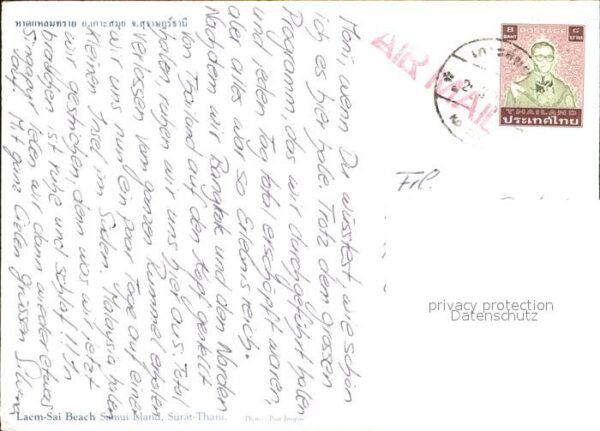 หาดแหลมทราย อ.เกาะสมุย จ.สุราษฎร์ธานี
Moni, wenn Du wüsstest, wie schön
ich es hier habe. Trotz dem grossen
Programm das wir durchgeführt haben
und jeden Tag total erschöpft waren,
aber alles war so Erlebnisreich.
Nachdem wir Bangkok und den Norden
von Thailand auf den Kopf gestellt
haben, ruhen wir uns hier aus. Total
verlassen vom ganzen Rummel erholen
wir uns nun ein paar Tage auf einer
kleinen Insel im Süden. Malaysia haben
wir gestrichen, denn was wir jetzt
brauchen ist ruhe und schlaf!!! In
Singapur leben wir dann wieder etwas
Mit ganz vielen Grüssen
AIR MAIL
8 BAHT
POSTAGE
THAILAND
ประเทศไทย
Frl.
privacy protection
Datenschutz
Laem-Sai Beach Samui Island, Surat-Thani.